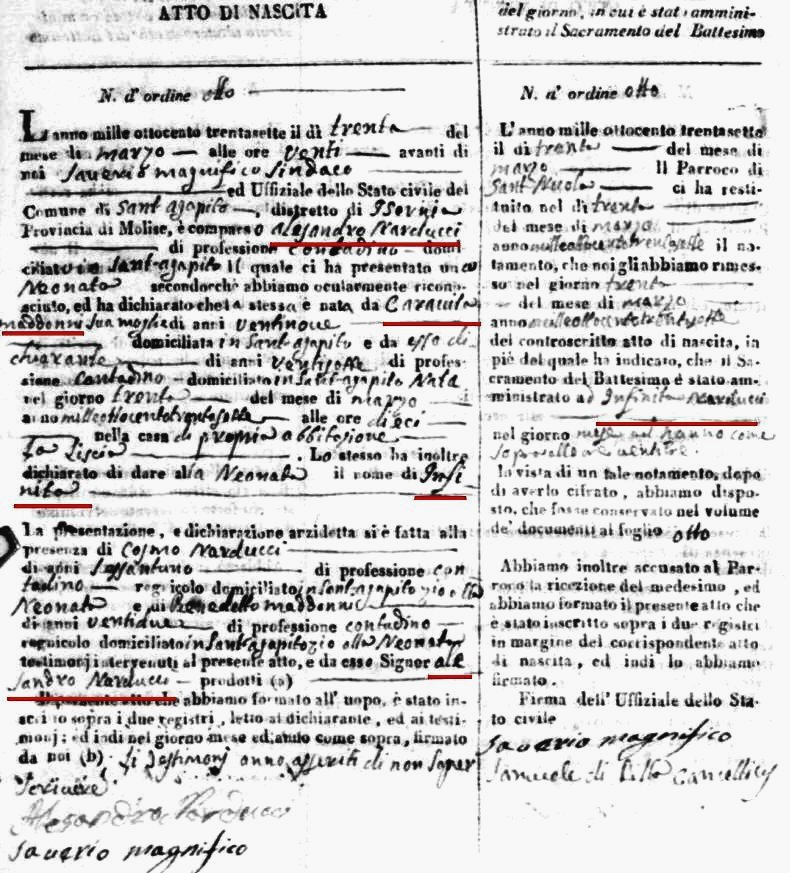 ATTO DI NASCITA
N. d' ordine otto
L'anno mille ottocento trentasette il dì trenta del
mese di marzo alle ore venti avanti di
noi Saverio magnifico Sindaco
ed Uffiziale dello Stato civile del
Comune di Sant agapito, distretto di Isernia
Provincia di Molise, è comparso alesandro Narducci
di professione contadino domi
ciliato in Sant-agapito il quale ci ha presentato una
Neonata secondocchè abbiamo ocularmente ricono-
sciuto, ed ha dichiarato che la stessa è nata da
maddonni sua moglie di anni ventinove
domiciliata in Sant agapito e da esso di
chiarante di anni ventisette di profes-
sione contadino domiciliato in Sant-agapito Nata
nel giorno trenta del mese di marzo
anno milleottocentotrentasette alle ore dieci
nella casa di propria abbitazione
. Lo stesso ha inoltre
dichiarato di dare alla Neonata il nome di Infi
nita
La presentazione, e dichiarazione anzidetta si è fatta alla
presenza di Cosmo Narducci
di anni Sessantuno di professione con
tadino regnicolo domiciliato in sant-agapito zio alla
Neonata e di Benedetto maddonni
di anni ventidue di professione contadino
regnicolo domiciliato in Sant-agapito zio alla Neonata
testimonj intervenuti al presente atto, e da esso Signor ale
sandro Narducci prodotti (a)
Il presente atto che abbiamo formato all' uopo, è stato in-
scritto sopra i due registri, letto al dichiarante, ed ai testi-
monj; ed indi nel giorno mese ed anno come sopra, firmato
da noi (b) li Testimonj anno asseriti di non saper
scrivere
Alesandro Narducci
Saverio magnifico
del giorno, in cui è stato ammini-
strato il Sacramento del Battesimo
N. d' ordine otto
L'anno mille ottocento trentasette
il di trenta del mese di
marzo Il Parroco di
Sant Nicola ci ha resti-
tuito nel di trenta
del mese di marzo
anno milleottocentotrentasette il no-
tamento, che noi gli abbiamo rimes-
so nel giorno trenta
del mese di marzo
anno milleottocentotrentasette
del controscritto atto di nascita, in
piè del quale ha indicato, che il Sa-
cramento del Battesimo è stato am-
ministrato ad Infinita Narducci
nel giorno mese ed hanno come
In vista di un tale notamento, dopo
di averlo cifrato, abbiamo dispo-
sto, che fosse conservato nel volume
de' documenti al foglio otto
Abbiamo inoltre accusato al Par-
roco la ricezione del medesimo, ed
abbiamo formato il presente atto che
è stato inscritto sopra i due registri
in margine del corrispondente atto
di nascita, ed indi lo abbiamo
firmato.
Firma dell' Uffiziale dello Sta-
to civile
Saverio magnifico